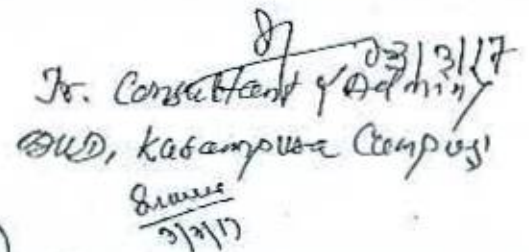 03/3/17
Jr. Consultant (Admin)
AUD, Karampura Campus
3/3/17